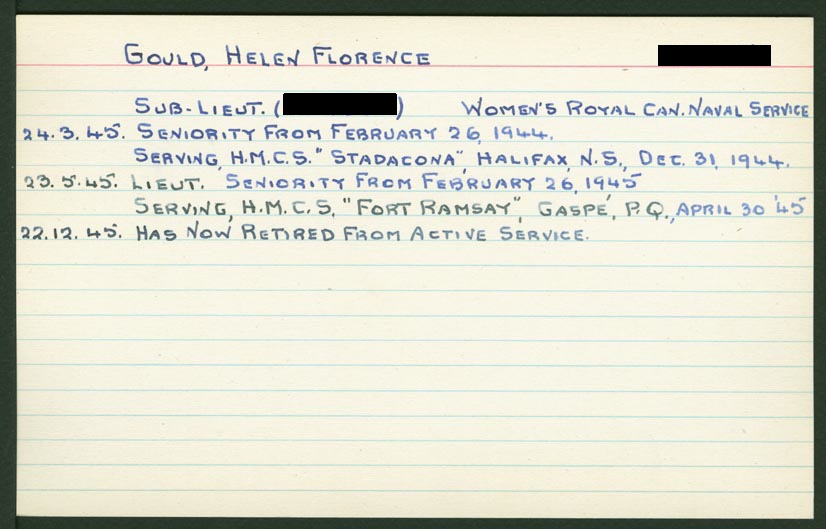 GOULD, HELEN FLORENCE
SUB-LIEUT. ( ) WOMEN'S ROYAL CAN. NAVAL SERVICE
24.3.45. SENIORITY FROM FEBRUARY 26, 1944.
SERVING, H.M.C.S. "STADACONA", HALIFAX, N.S., DEC. 31, 1944.
23.5.45. LIEUT. SENIORITY FROM FEBRUARY 26, 1945
SERVING, H.M.C.S, "FORT RAMSAY", GASPÉ, P.Q., APRIL 30 '45
22.12.45. HAS NOW RETIRED FROM ACTIVE SERVICE.